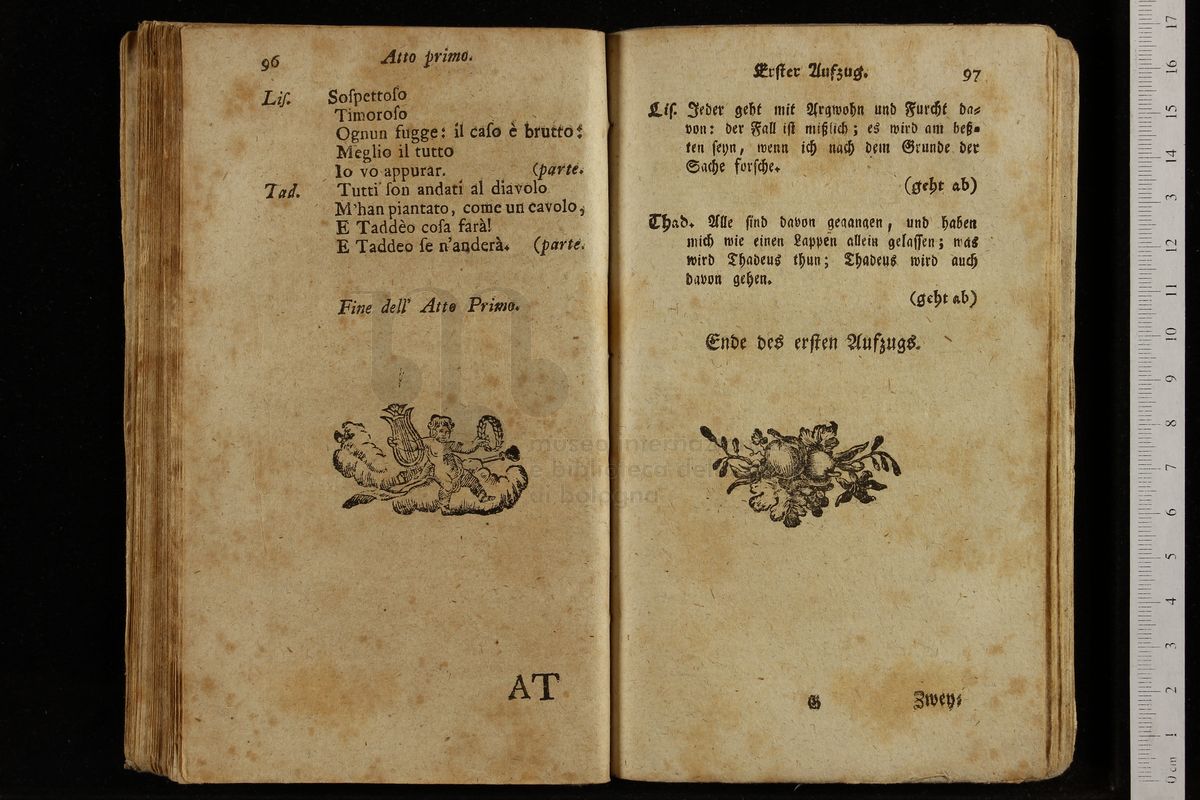 96 Atto primo.
Liſ. Soſpettoſo
Timoroſo
Ognun fugge: il caſo è brutto:
Meglio il tutto
Io vo appurar. (parte.
Tad. Tutti ſon andati al diavolo
M'han piantato, come un cavolo,
E Taddeo coſa farà!
E Taddeo ſe n'anderà. (parte.
Fine dell' Atto Primo.
AT
Erſter Aufzug. 97
Liſ. Jeder geht mit Argwohn und Furcht da⸗
von: der Fall iſt mißlich; es wird am beß⸗
ten ſeyn, wenn ich nach dem Grunde der
Sache forſche.
(geht ab)
Thad. Alle ſind davon gegangen, und haben
mich wie einen Lappen allein gelaſſen; was
wird Thadeus thun; Thadeus wird auch
davon gehen.
(geht ab)
Ende des erſten Aufzugs.
G Zwey⸗
museo interna
e biblioteca de
di bologna
0 cm 1 2 3 4 5 6 7 8 9 10 11 12 13 14 15 16 17